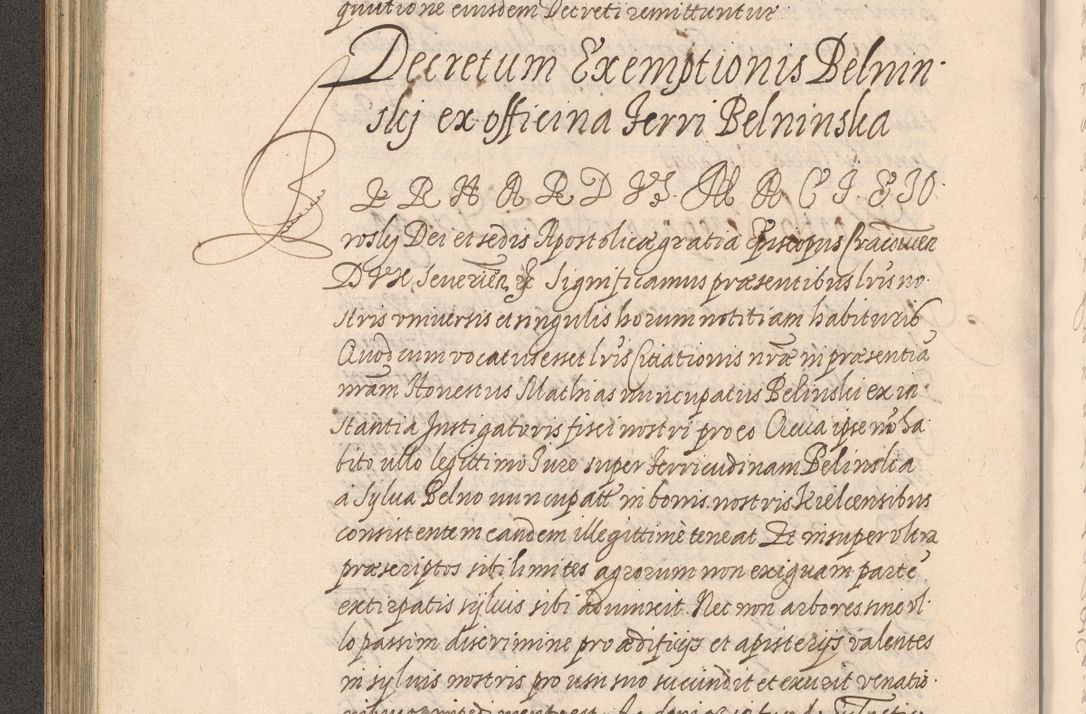 quutione eiusdem Decreti remittuntur
Decretum Exemptionis Belnin
skj ex officina Ferri Belninska
BERNARDVS MACIEIO
roskj Dei et sedis Apostolicæ gratia Episcopus Cracouien
DVX Seuerien &c Significamus præsentibus lris no
stris vniuersis et singulis horum notitiam habituris
Quod cum vocatus esset lris Citationis nræ in præsentiā
nrām Honestus Mathias nuncupatus Belinski ex in
stantia Instigatoris fisci nostri pro eo Quia ipse nō ha
bito ullo legittimo Iure super ferricudinam Belinska
a Sylua Belno nuncupatt in bonis nostris Kielcensibus
consistentem eandem illegittimè teneat Et insuper vltra
præscriptos sibi limites agrorum non exiguam partē
extirpatis syluis sibi adiunxit. Nec non arbores sine vl
lo passim discrimine pro ædificijs et apisterijs valentes
in syluis nostris pro usu suo succindit et exurit venatio